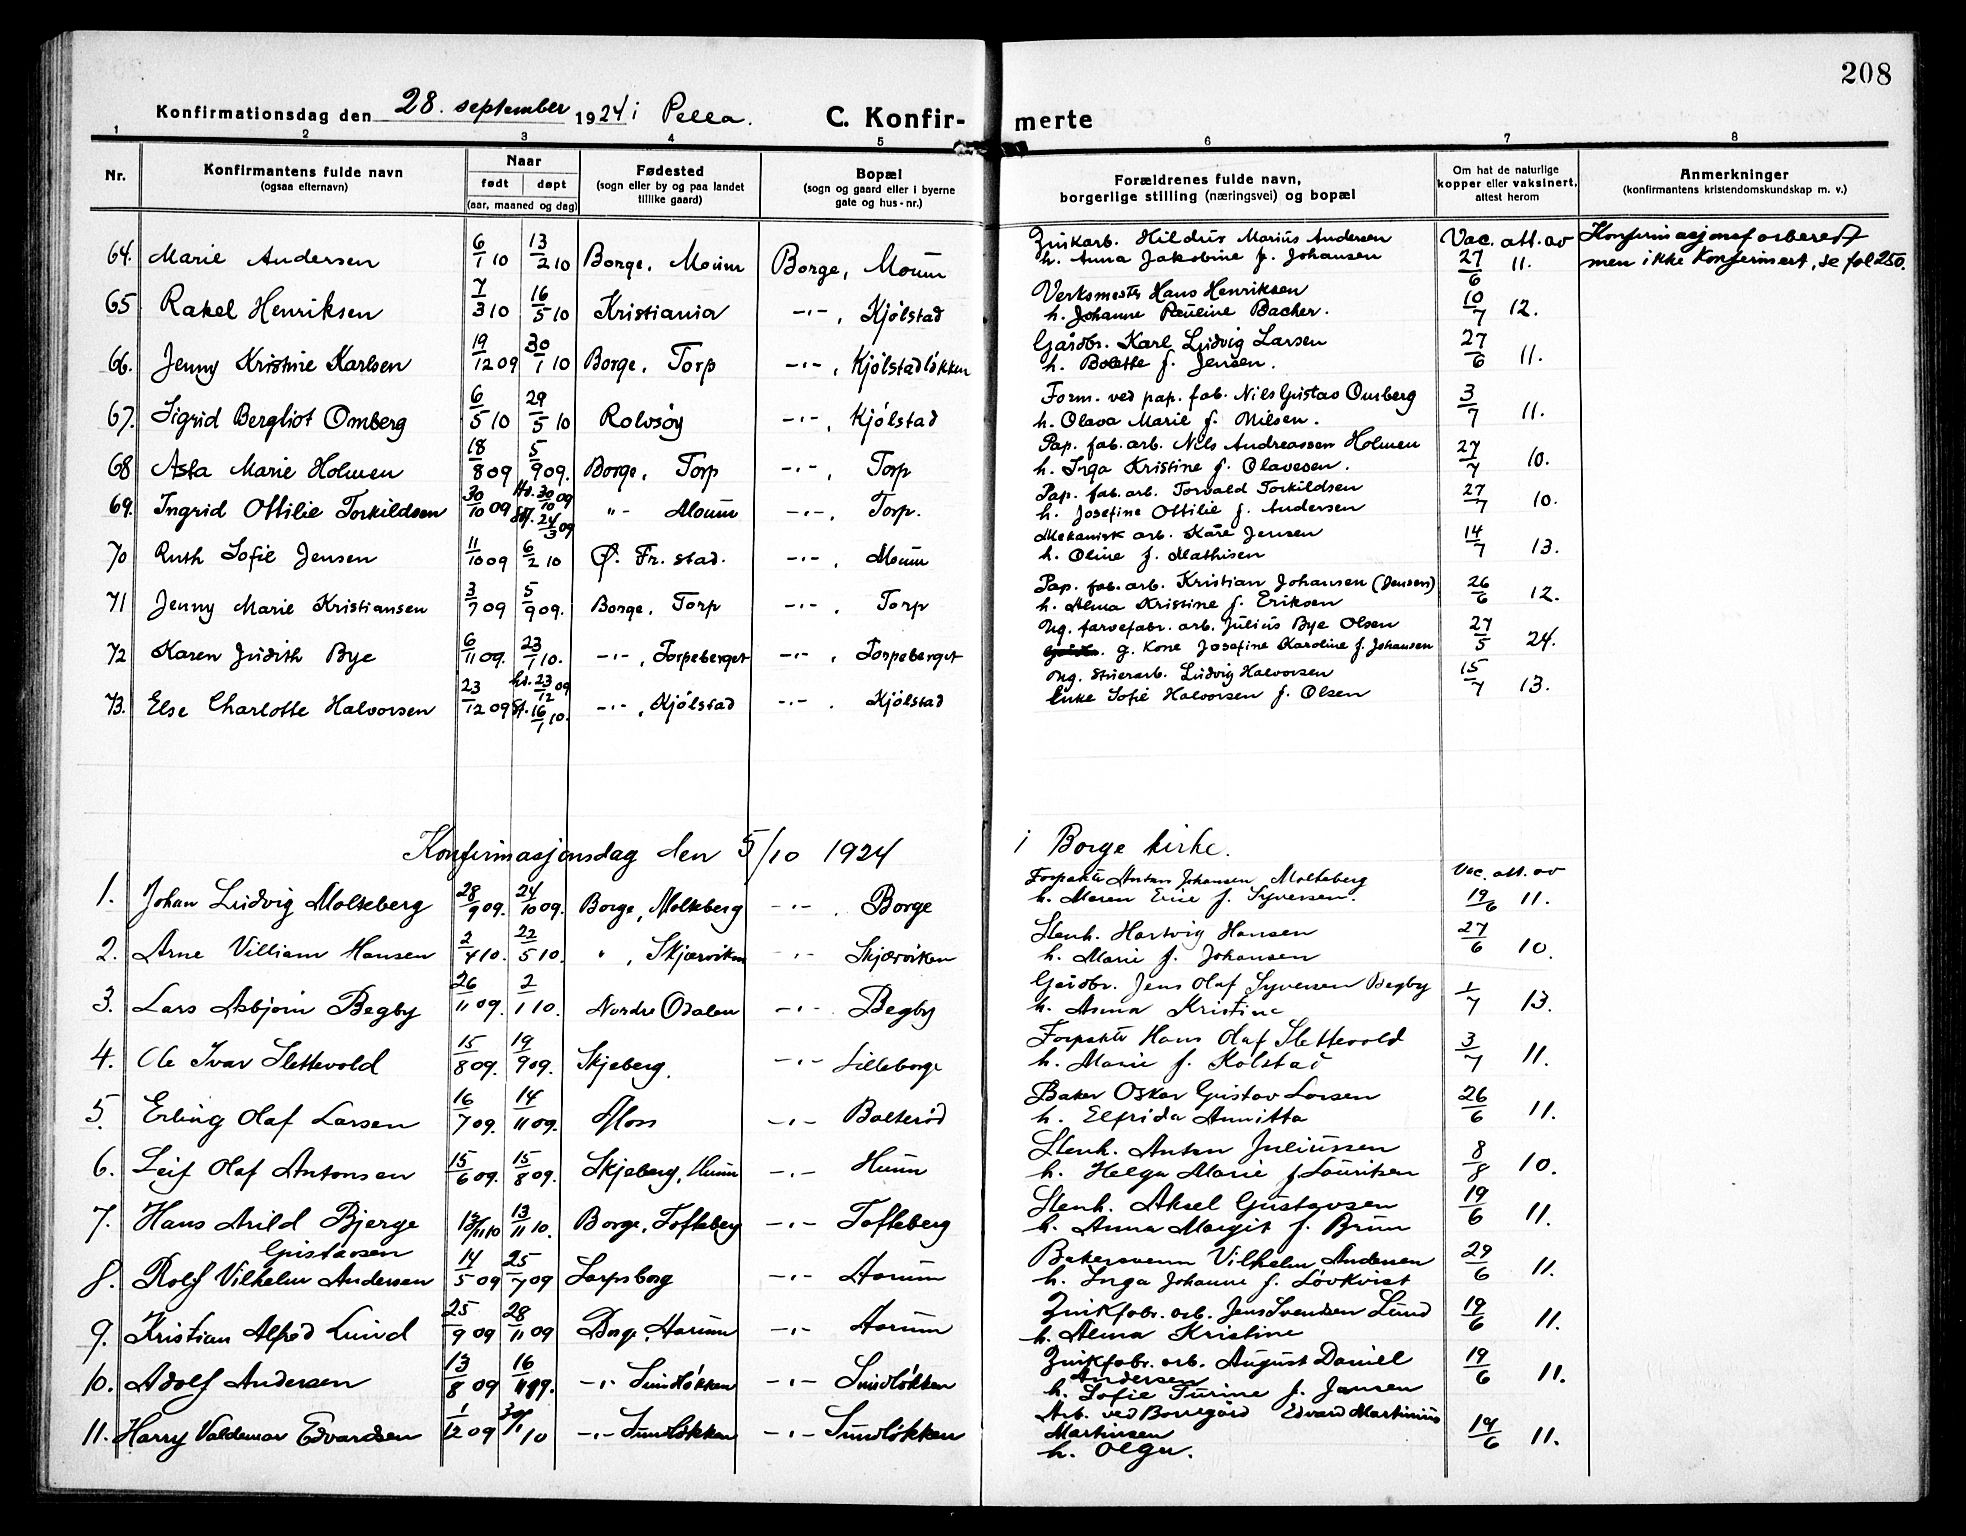 208
Konfirmationsdag den 28. september 1924 i Pella.
C. Konfir- merte
1 2 3 4 5 6 7 8
Nr.
Konfirmantens fulde navn
(ogsaa efternavn)
Naar
født døpt
(aar, maaned og dag)
Fødested
(sogn eller by og paa landet
tillike gaard)
Bopæl
(sogn og gaard eller i byerne
gate og hus-nr.)
Forældrenes fulde navn,
borgerlige stilling (næringsvei) og bopæl
Om hat de naturlige
kopper eller vaksinert,
attest herom
Anmerkninger
(konfirmantens kristendomskundskap m. v.)
64. Marie Andersen 6/1 10 13/2 10 Borge, Moum Borge, Moum Zinkarb. Hildus Marius Andersen Vac. att. av Konfirmasjonsforberedt
h. Anna Jakobine f. Johansen 27/6 11. men ikke konfirmert, se fol 250.
65 Rakel Henriksen 7/3 10 16/5 10 Kristiania -"-, Kjølstad Verksmester Hans Henriksen
h. Johanne Pauline Bacher. 10/7 12.
66. Jenny Kristine Karlsen 19/12 09 30/1 10 Borge, Torp -"-, Kjølstadløkken Gårdbr. Karl Ludvig Larsen
h. Bolette f. Jensen. 27/6 11.
67. Sigrid Bergliot Omberg 6/5 10 29/5 10 Rolvsøy -"-, Kjølstad Form. ved pap. fab. Nils Gustav Omberg
h. Olava Marie f. Nilsen. 3/7 11.
68 Asta Marie Holmen 18/8 09 5/9 09. Borge, Torp -"-, Torp Pap. fab. arb. Nils Andreassen Holmen
h. Inga Kristine f. Olavesen. 27/7 10.
69. Ingrid Ottilie Torkildsen 30/10 09 Hd. 30/10 09 "- Moum -"-, Torp. Pap. fab. arb. Torvald Torkildsen
24/3 09 h. Josefine Ottilie f. Andersen 27/7 10.
70 Ruth Sofie Jensen 11/10 09 6/2 10 Ø. Fr. stad. -"-, Moum Mekanisk arb. Kåre Jensen
h. Oline f. Mathisen 14/7 13.
71 Jenny Marie Kristiansen 3/7 09 5/9 09. Borge, Torp -"-, Torp Pap. fab. arb. Kristian Johansen (Jensen)
h. Alma Kristine f. Eriksen 26/6 12.
72 Karen Judith Bye 6/11 09. 23/1 10. -"-, Torpeberget -"-, Torpeberget Ug. farvefabr. arb. Julius Bye Olsen
g. Kone Josefine Karoline f. Johansen 27/5 24.
73. Else Charlotte Halvorsen 23/12 09 hd. 23/12 09 -"-, Kjølstad -"- Kjølstad Ug. stuerarb. Ludvig Halvorsen
St. 16/1 10. Enke Sofie Halvorsen f. Olsen 15/7 13.
Konfirmasjonsdag den 5/10 1924 i Borge kirke.
1. Johan Ludvig Molteberg 28/9 09. 24/10 09. Borge, Molteberg -"-, Borge Forpakter Anton Johansen Molteberg Vac. att. av
h. Maren Evine f. Syversen. 19/6 11.
2. Arne Villiam Hansen 2/4 10. 22/5 10. ", Skjærviken -"- Skjærviken Stenh. Hartvig Hansen
h. Marie f. Johansen 27/6 10.
3. Lars Asbjørn Begby 26/11 09. 2/1 10. Nordre Odalen -"- Begby Gårdbr. Jens Olaf Syversen Begby
h. Anna Kristine 1/7 13.
4. Ole Ivar Slettevold 15/8 09. 19/9 09. Skjeberg. -"- Lilleborge Forpakter Hans Olaf Slettevold
h. Marie f. Kolstad 3/7 11.
5. Erling Olaf Larsen 16/7 09. 14/11 09. Moss -"- Balterød Baker Oskar Gustav Larsen
h. Elfrida Annitta 26/6 11.
6. Leif Olaf Antonsen 15/6 09. 15/8 09. Skjeberg, Huun -"- Huun Stenh. Anton Juliussen
h. Helga Marie f Lauritsen 8/8 10.
7. Hans Arild Bjerge 13/11 10 13/11 10. Borge, Tofteberg -"- Tofteberg Stenh. Aksel Gustavsen
Gustavsen h. Anna Margit f. Bruun 19/6 11.
8. Rolf Vilhelm Andersen 14/5 09 25/7 09 Sarpsborg -"- Aarum Bakersvenn Vilhelm Andersen
h. Inga Johanne f. Løvkvist 29/6 11.
9. Kristian Alfred Lund 25/9 09 28/11 09 Borge, Aarum -"- Aarum Zinkfabr. arb. Jens Svendsen Lund
h. Alma Kristine 19/6 11.
10. Adolf Andersen 13/8 09 16/11 09. -"- Sundløkken -"- Sundløkken Zinkfabr. arb. August Daniel
Andersen
h. Sofie Turine f. Jansen 19/6 11.
11. Harry Valdemar Edvardsen 1/12 09 30/1 10 -"- Sundløkken -"- Sundløkken Arb. ved Borregård Edvard Martinius
Martinsen
h. Olga. 19/6 11.